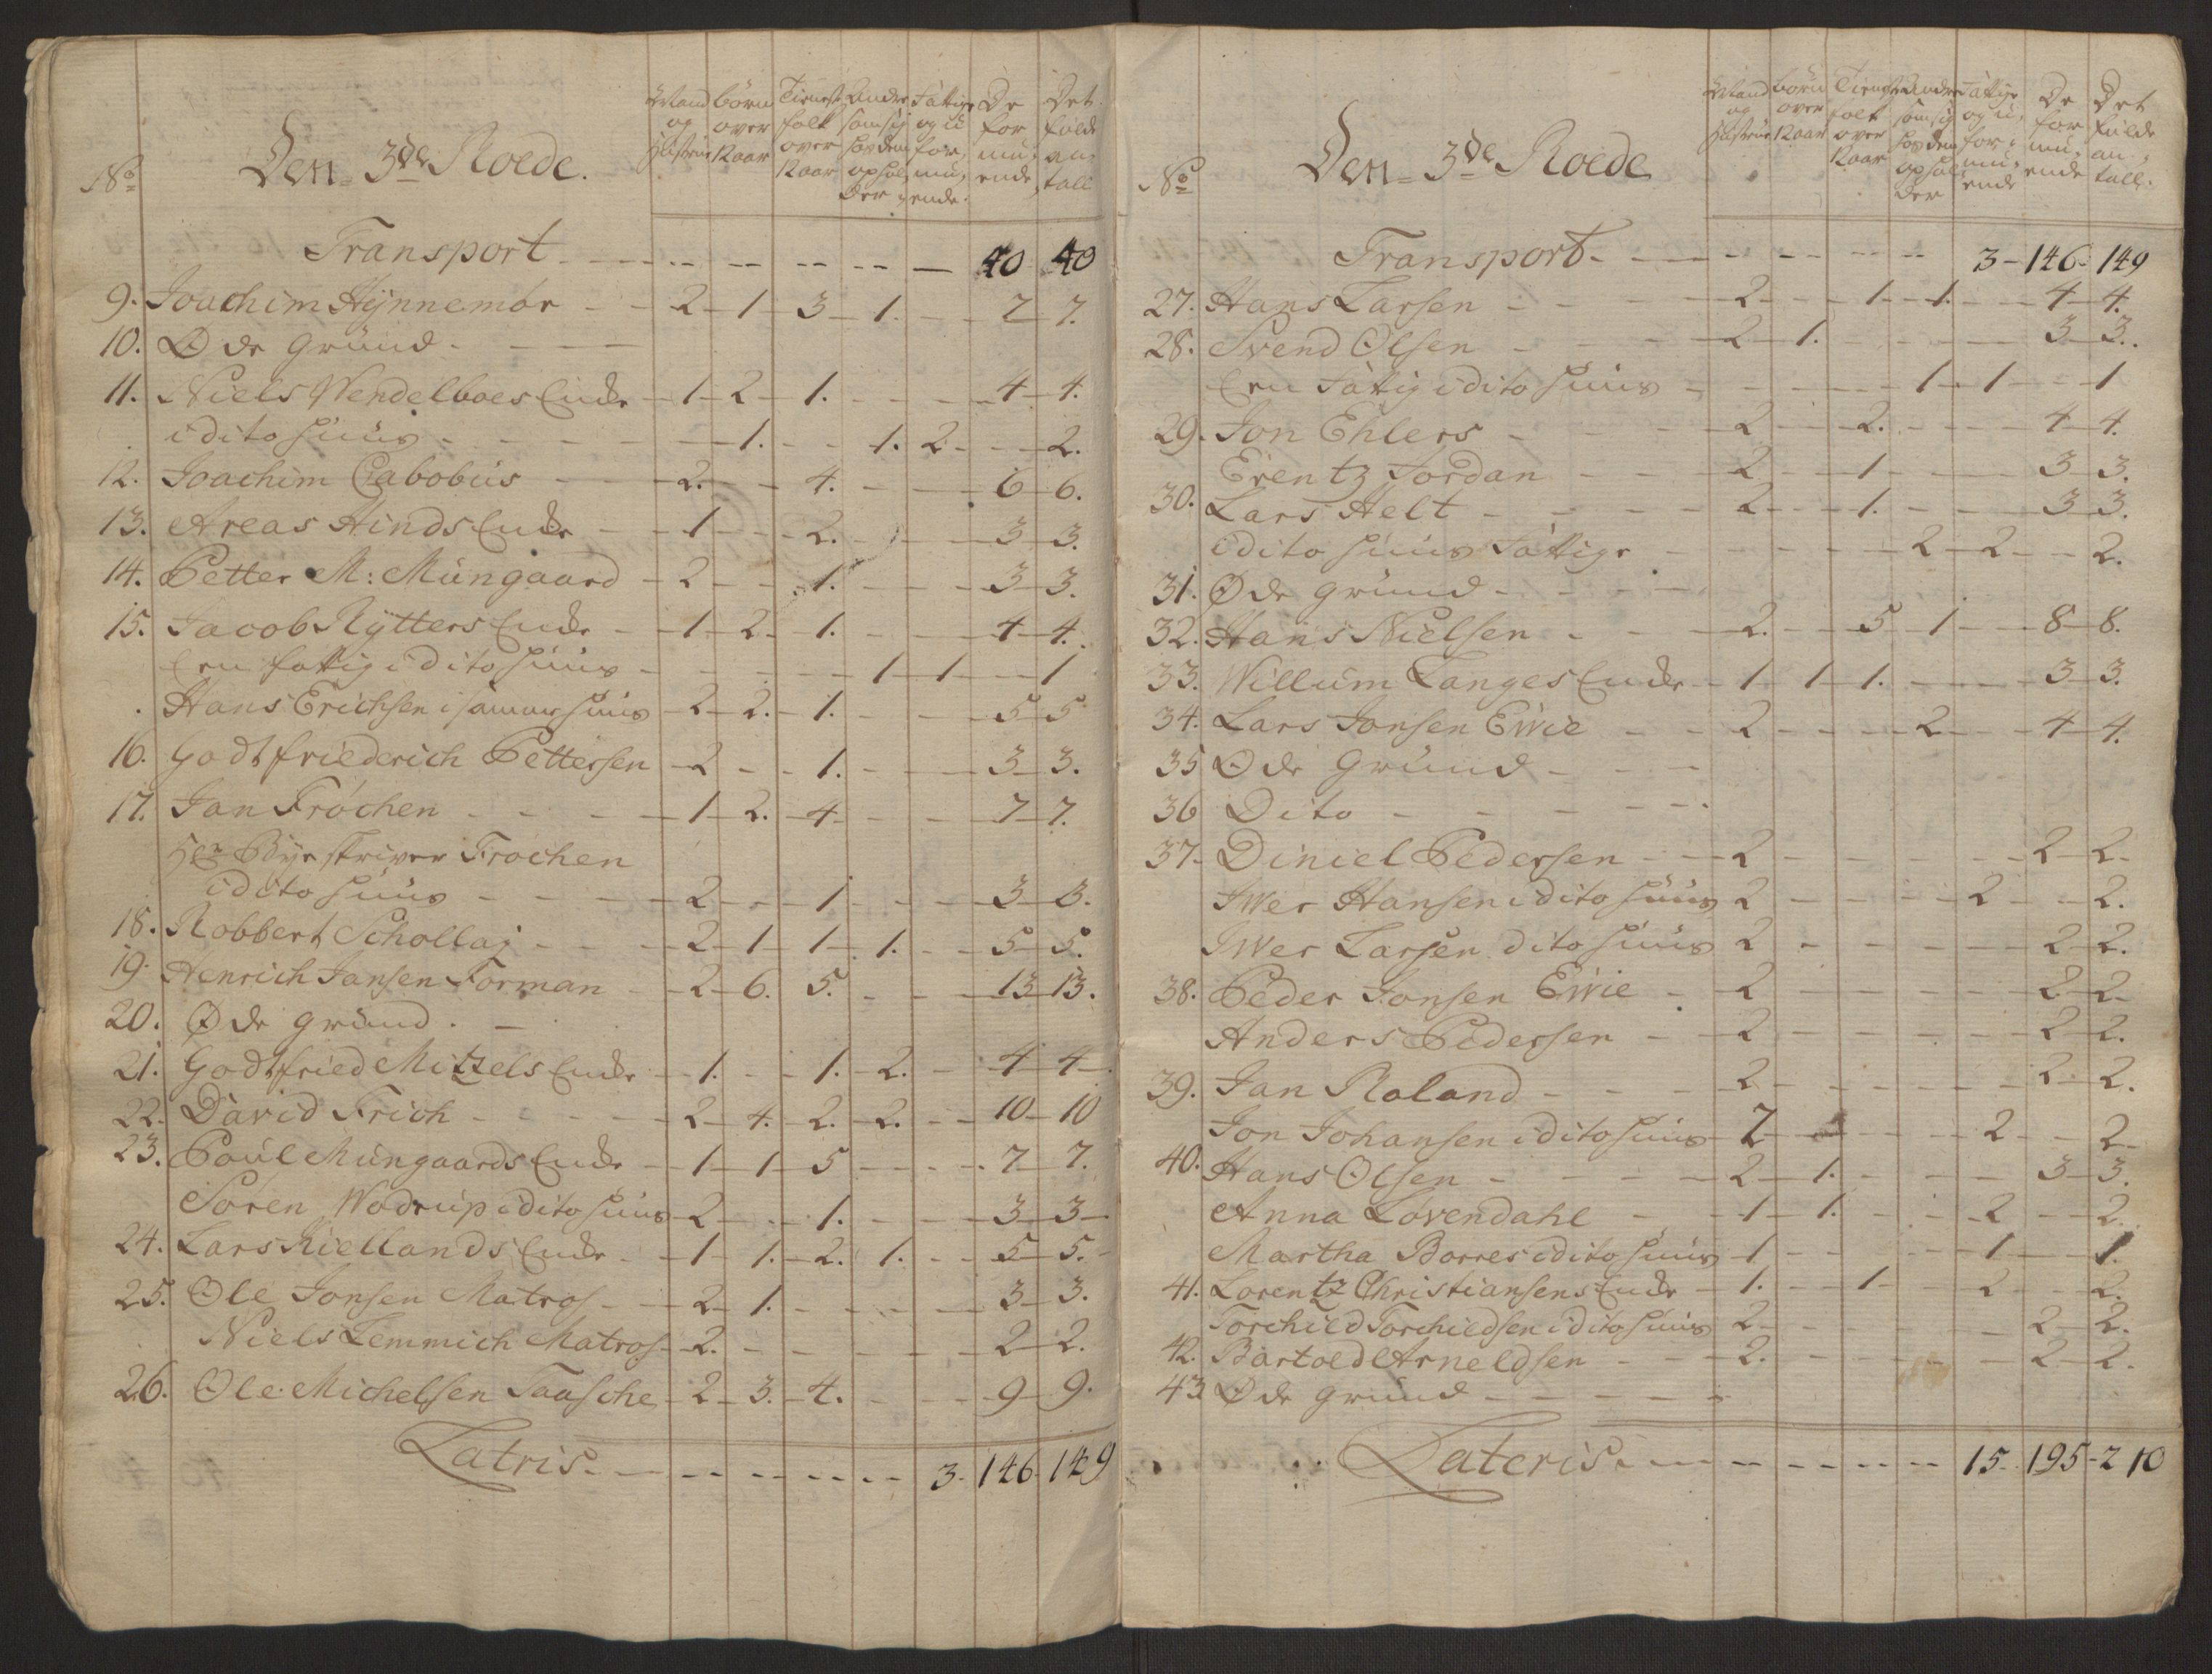 No Den 3de Roede. Mand og Hustrue | börn over 12 aar | Tienest folk over 12 aar | Andre som sig hos dem opholder | Fattige og uformuende | De formuende | Det fulde antall
Transport - - - - - - 40 40
9. Joachim Hÿnnemör - - 2 - 1 - 3 - 1. - - 7 - 7.
10. Øde Grund - - - -
11. Niels Wendelboes Encke - 1 - 2 - 1. - - - 4 - 4.
i dito Huus - - - 1. - - 1. 2. - - 2.
12. Joachim Cabobus - 2. - - 4. - - - 6 - 6.
13. Areas Hinds Encke - 1 - - 2. - - - 3 3.
14. Petter M: Mungaard - 2 - - 1. - - - 3 - 3.
15. Jacob Rÿtters Encke - 1 - 2. - 1. - - - 4 - 4.
Een fattig i dito Huus - - - - - 1 - 1 - - 1
Hans Erichsen i samme Huus - 2 - 2. - 1. - - - 5 - 5
16. Godtfriederich Pettersen - 2 - - 1. - - - 3 - 3.
17. Jan Fröchen - - - 1 - 2. - 4 - - - 7 - 7.
Hr Bye skriver Frochen
i dito Huus - - - - 2 - - 1 - - - 3 - 3.
18. Robbert Schollaj - - - 2 - 1 - 1 - 1. - - 5 - 5.
19. Henrich Jansen Forman - 2 - 6. 5. - - - 13 - 13.
20. Øde grund. -
21. Godtfried Mitzels Encke - 1. - - 1. - 2. - 4 - 4 -
22. David Frich - - - - 2 - 4. - 2. - 2. - - 10 - 10
23. Poul Mungaards Encke - 1 - 1 - 5 - - - . 7 - 7.
Sören Wodrup i dito Huus - 2 - - 1. - - - 3 - 3 -
24. Lars Kiellands Encke - 1 1. - 2. - 1. - - 5 - 5. -
25. Ole Jonsen Matros - - 2 - 1. - - - - 3 - 3.
Niels Lemmich Matros - 2. - - - - - 2 - 2.
26. Ole Michelsen Taasche - 2 - 3. - 4. - - - 9 - 9.
Latris. - - - - - - 3 - 146 - 149
No Den 3de Roede Mand og Hustrue | börn over 12 aar | Tienest folk over 12 aar | Andre som sig hos dem opholder | Fattige og uformuende | De formuende | Det fulde antall.
Transport - - - - - - 3 - 146 - 149
27. Hans Larsen - - - 2 - - 1 - 1. - - 4 - 4.
28. Svend Olsen - - - 2 - 1. - - - 3 - 3.
Een Fattig i dito Huus - - - - - 1 - 1 - - 1
29. Jon Ehlers - - - 2 - - 2. - - - 4 - 4.
Erentz Jordan - - 2 - - 1 - - - 3 - 3.
30. Lars Helt - - - - 2 - - 1. - - - 3 - 3.
i dito Huus Fattige - - - - - 2 - 2 - - 2.
31. Øde grund - - - -
32. Hans Nielsen - - - 2. - - 5 - 1 - - 8 - 8.
33. Willum Langes Encke - 1 1 - 1. - - - 3 - 3.
34. Lars Jonsen Ewie - - 2 - - - 2 - - 4 - 4.
35 Øde Grund - - -
36 Dito - - - - -
37. Diniel Pedersen - - 2 - - - - 2 - 2 -
Iwer Hansen i dito Huus 2 - - - - 2 - - 2.
Iwer Larsen dito Huus 2 - - - - - 2 - 2.
38. Peder Jonsen Ewie - 2 - - - - - 2 - 2 -
Anders Pedersen - - 2 - - - - - 2 - 2.
39. Jan Roland - - - 2 - - - - - 2 - 2.
Jon Johansen i dito Huus - 2 - - - 2 - - 2 -
40. Hans Olsen - - - - 2 - 1. - - - 3 - 3.
Anna Lövendahl - - 1 - 1. - - - 2 - - 2.
Martha Borres i dito Huus - 1 - - - - 1 - - 1.
41. Lorentz Christiansens Encke - 1. - - 1 - - 2 - - 2.
Torchild Torchildsen i dito Huus 2 - - - - - 2 - 2.
42. Bartold Arneldsen - - - 2. - - - - 2 - 2.
43 Øde grund - - - - -
Lateris. - - - - - - 15 - 195 - 210